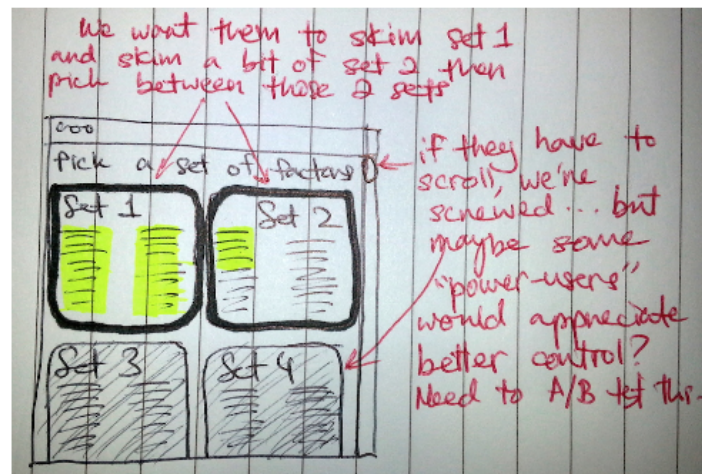 We want them to skim set 1
and skim a bit of set 2 then
pick between those 2 sets
ooo
Pick a set of factors
Set 1
Set 2
Set 3
Set 4
if they have to
scroll, we're
screwed... but
maybe some
"power-users"
would appreciate
better control?
Need to A/B test this.